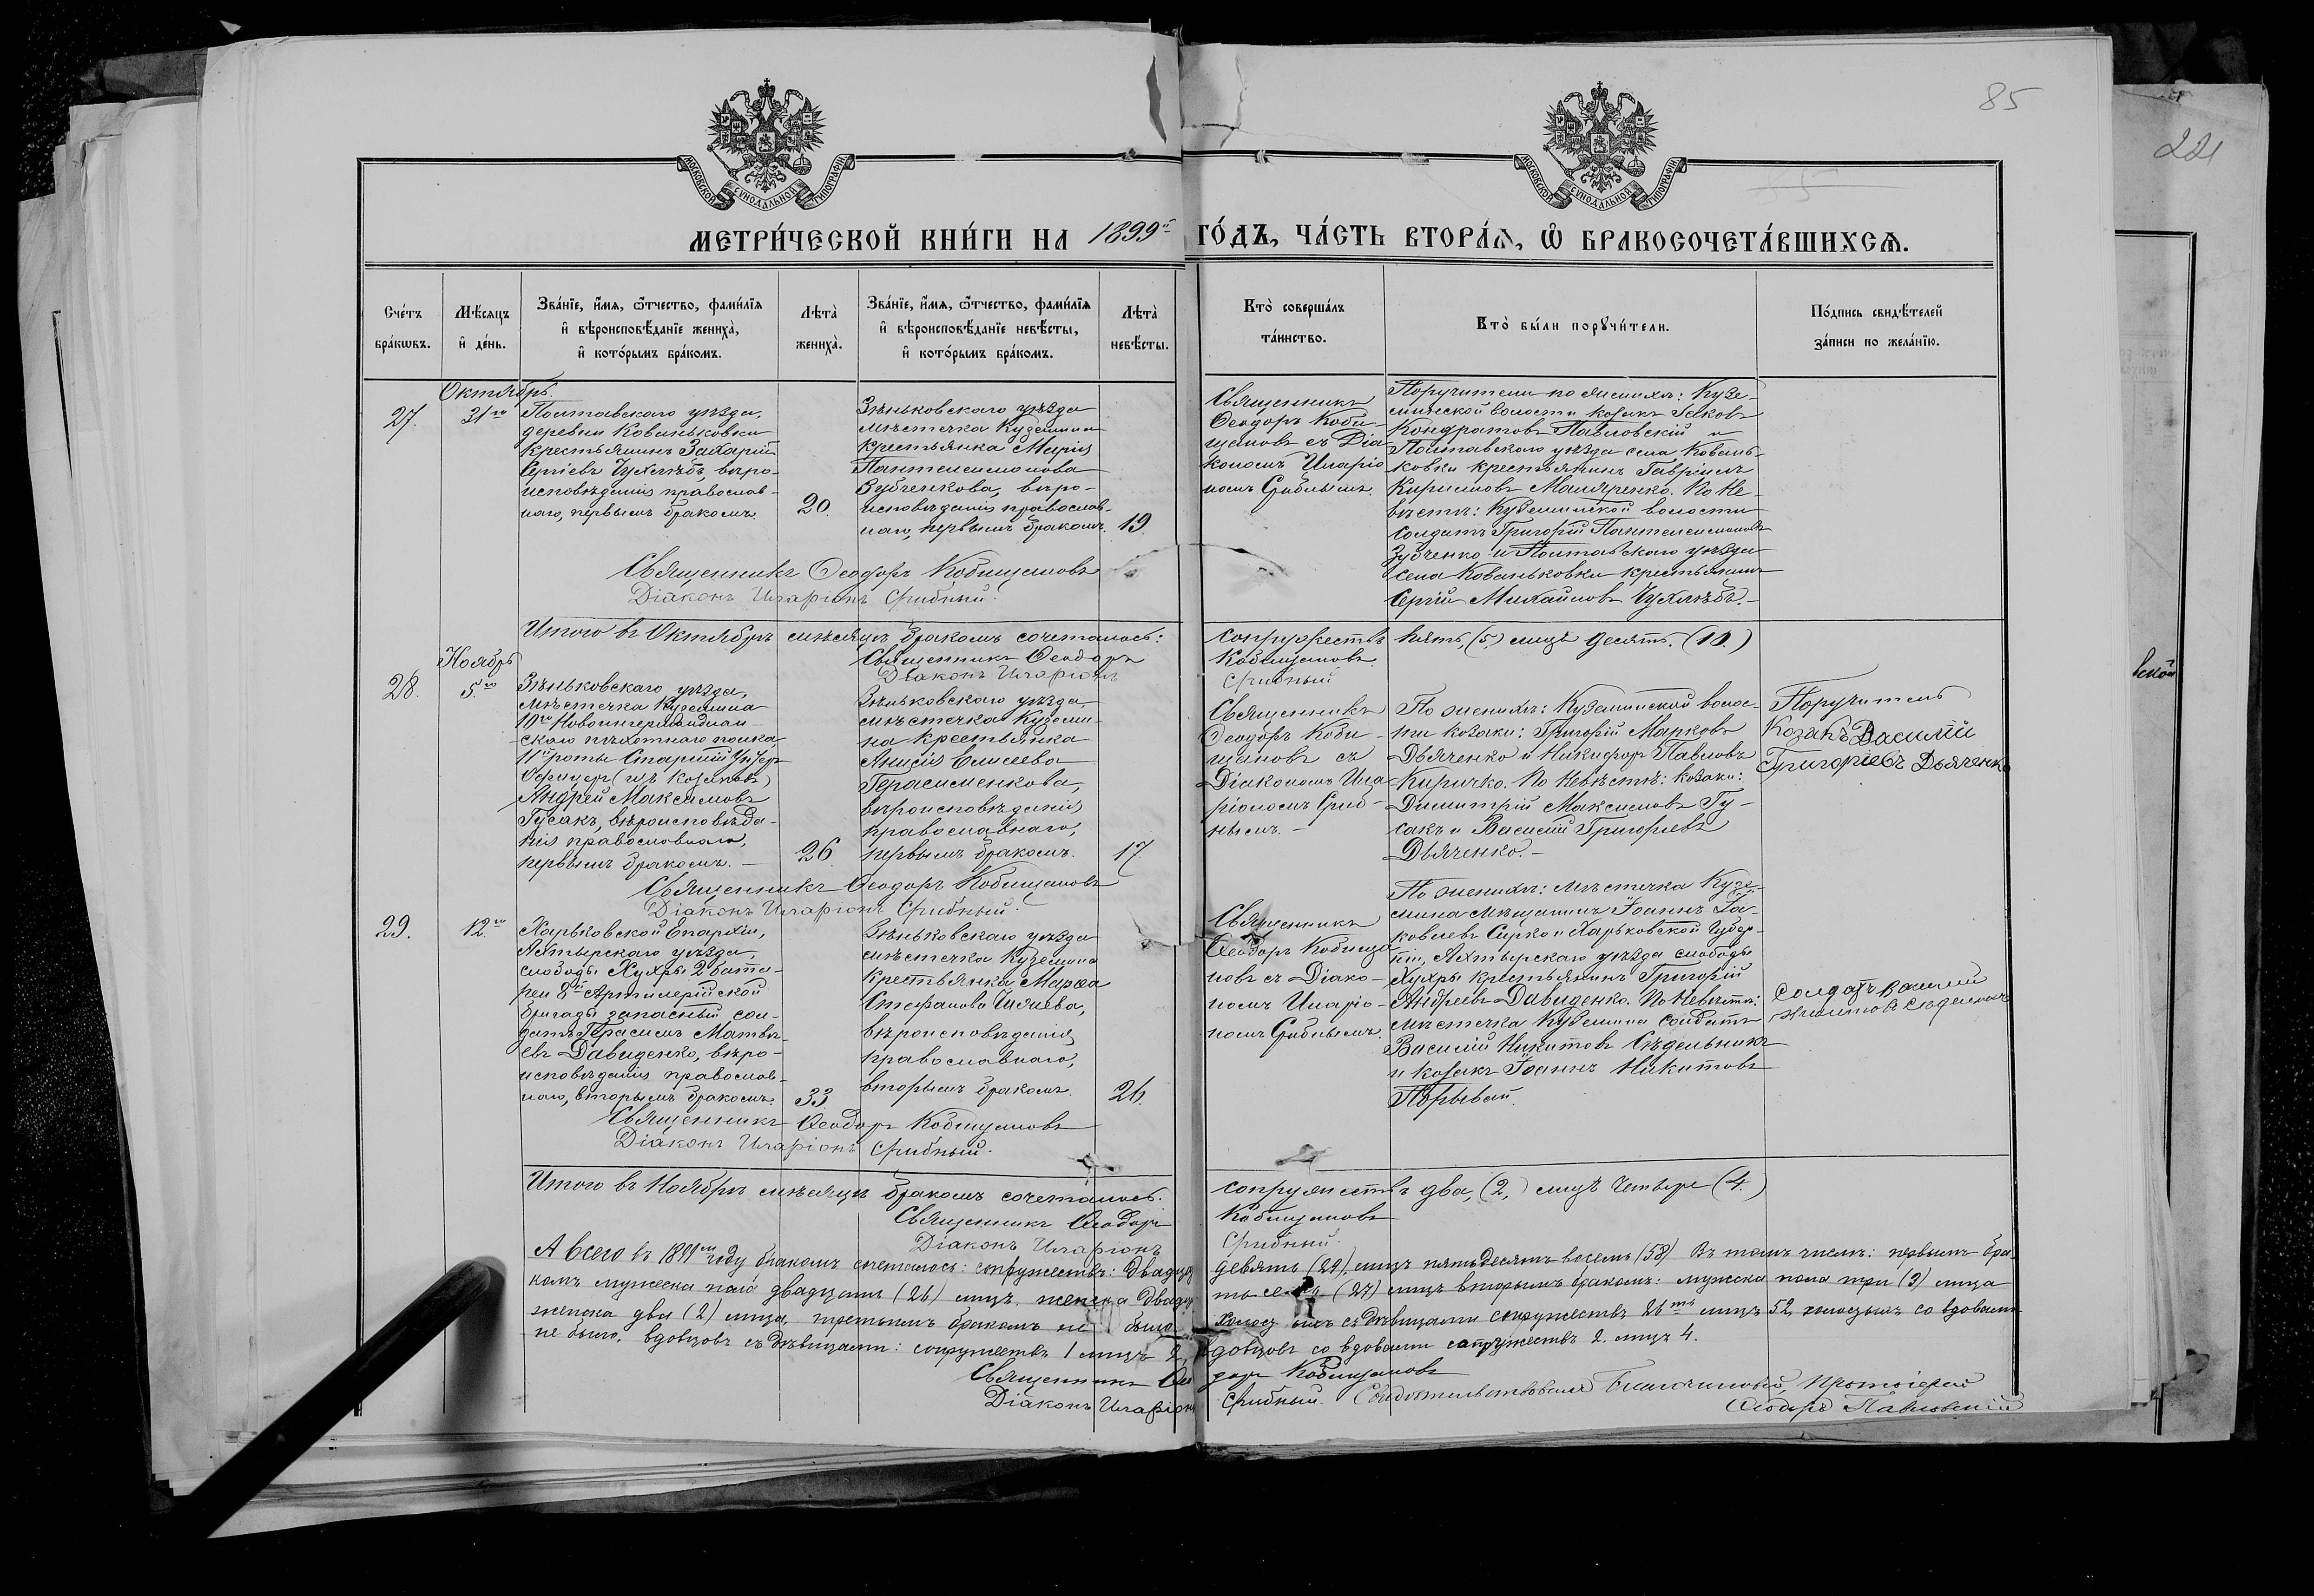 85
221
МОСКОВСКОЙ СѴНОДАЛЬНОЙ ТИПОГРАФІИ
МОСКОВСКОЙ СѴНОДАЛЬНОЙ ТИПОГРАФІИ
МЕТРИ́ЧЕСКОЙ КНИ́ГИ НА 1899й ГО́ДЪ, ЧА́СТЬ ВТОРА́Ѧ, Ѽ БРАКОСОЧЕТА́ВШИХСѦ.
Сче́тъ
бра́кωвъ.
Мѣ́сяцъ
и҆ де́нь.
Зва́нїе, и҆́мя, ѻ҆́тчество, фами́лїя
и҆ вѣроисповѣ́данїе жениха̀,
и҆ кото́рымъ бра́комъ.
Лѣ́та
жениха̀.
Зва́нїе, и҆́мя, ѻ҆́тчество, фами́лїя
и҆ вѣроисповѣ́данїе невѣ́сты,
и҆ кото́рымъ бра́комъ.
Лѣ́та
невѣ́сты.
Кто̀ соверша́лъ
та́инство.
Кто̀ бы́ли порꙋчи́тели.
По́дпись свидѣ́телей
за́писи по жела́нїю.
Октябрь.
27.
31го
Полтавскаго уѣзда,
деревни Кованьковки
крестьянинъ Захарій
Сергіевъ Чухлѣбъ, вѣро-
исповѣданія православ-
наго, первымъ бракомъ.
20.
Зѣньковскаго уѣзда
мѣстечка Куземина
крестьянка Марія
Пантелеимонова
Зубченкова, вѣро-
исповѣданія православ-
наго, первымъ бракомъ.
19.
Священникъ
Ѳеодоръ Коби-
щановъ съ Діа-
кономъ Иларіо-
номъ Срибнымъ.
Поручители по женихѣ: Кузе-
минской волости козакъ Іаковъ
Кондратовъ Павловскій и
Полтавскаго уѣзда села Ковань-
ковки крестьянинъ Гавріилъ
Кириловъ Маляренко. По не-
вѣстѣ: Куземинской волости
солдатъ Григорій Пантелеимоновъ
Зубченко и Полтавскаго уѣзда
села Кованьковки крестьянинъ
Сергій Михайловъ Чухлѣбъ.
Священникъ Ѳеодоръ Кобищановъ
Діаконъ Иларіонъ Срибный.
Итого въ Октябрѣ мѣсяцѣ бракомъ сочеталось: супружествъ пять, (5) лицъ десять. (10.)
Священникъ Ѳеодоръ Кобищановъ
Діаконъ Иларіонъ Срибный
Ноябрь
28.
5го
Зѣньковскаго уѣзда,
мѣстечка Куземина
10го Новоингерманланд-
скаго пѣхотнаго полка,
11й роты Старшій Унтеръ
Офицеръ (изъ козаковъ)
Андрей Максимовъ
Гусакъ, вѣроисповѣда-
нія православнаго,
первымъ бракомъ.
26.
Зѣньковскаго уѣзда,
мѣстечка Куземи-
на крестьянка
Анисія Елисеева
Герасименкова,
вѣроисповѣданія
православнаго,
первымъ бракомъ.
17.
Священникъ
Ѳеодоръ Коби-
щановъ съ
Діакономъ Ила-
ріономъ Сриб-
нымъ.
По женихѣ: Куземинской волос-
ти козаки: Григорій Марковъ
Дьяченко и Никифоръ Павловъ
Киричко. По невѣстѣ: козаки:
Димитрій Максимовъ Гу-
сакъ и Василій Григорьевъ
Дьяченко.
Поручитель
Козакъ Василий
Григориевъ Дьяченко
Священникъ Ѳеодоръ Кобищановъ
Діаконъ Иларіонъ Срибный.
29.
12го
Харьковской Епархіи,
Ахтырскаго уѣзда,
слободы Хухры 2 бата-
реи 8й Артилерійской
бригады запасный сол-
датъ Герасимъ Матвѣ-
евъ Давиденко, вѣро-
исповѣданія православ-
наго, вторымъ бракомъ.
33.
Зѣньковскаго уѣзда
мѣстечка Куземина
крестьянка Марѳа
Стефанова
вѣроисповѣданія
православнаго,
вторымъ бракомъ.
26.
Священникъ
Ѳеодоръ Кобища-
новъ съ Діако-
номъ Иларіо-
номъ Срибнымъ.
По женихѣ: мѣстечка Кузе-
мина мѣщанинъ Іоаннъ Іа-
ковлевъ Сирко и Харьковской Губер-
ніи, Ахтырскаго уѣзда слободы
Хухры крестьянинъ Григорій
Андреевъ Давиденко. По невѣстѣ:
мѣстечка Куземина солдатъ
Василій Никитовъ Сѣдельникъ
и козакъ Іоаннъ Никитовъ
Порывай.
Солдатъ Василий
Никитовъ
Священникъ Ѳеодоръ Кобищановъ
Діаконъ Иларіонъ Срибный.
Итого въ Ноябрѣ мѣсяцѣ бракомъ сочеталось: супружествъ два, (2,) лицъ четыре (4.)
Священникъ Ѳеодоръ Кобищановъ
Діаконъ Иларіонъ Срибный.
А всего въ 1899мъ году бракомъ сочеталось: супружествъ: двадца девять (29), лицъ пятьдесятъ восемь (58) Въ томъ числѣ: первымъ бра-
комъ мужеска пола двадцати (26) лицъ, женска двадца ть (27) лицъ вторымъ бракомъ: мужска пола три (3) лица
женска два (2) лица, третьимъ бракомъ не было. съ дѣвицами супружествъ 26ть лицъ 52, холостыхъ со вдовами
не было, вдовцовъ съ дѣвицами: супружествъ 1 лицъ 2, вдовцовъ со вдовами супружествъ 2. лицъ 4.
Священникъ Ѳеодоръ Кобищановъ
Діаконъ Иларіонъ Срибный. Свидѣтельствовалъ Благочинный, Протоіерей
Ѳеодоръ Павловскій